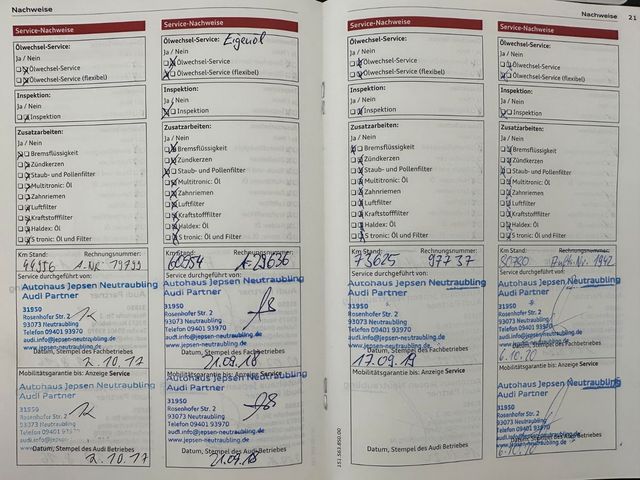 Nachweise
Service-Nachweise
Ölwechsel-Service:
Ja / Nein
Ölwechsel-Service
Ölwechsel-Service (flexibel)
Inspektion:
Ja / Nein
Inspektion
Zusatzarbeiten:
Ja / Nein
Bremsflüssigkeit
Zündkerzen
Staub- und Pollenfilter
Multitronic: Öl
Zahnriemen
Luftfilter
Kraftstofffilter
Haldex: Öl
S tronic: Öl und Filter
Km Stand: Rechnungsnummer:
44956 A-NR 19799
Service durchgeführt von:
Autohaus Jepsen Neutraubling
Audi Partner
31950
Rosenhofer Str. 2
93073 Neutraubling
Telefon 09401 93970
audi.info@jepsen-neutraubling.de
www.jepsen-neutraubling.de
Datum, Stempel des Fachbetriebes
2.10.17
Mobilitätsgarantie bis: Anzeige Service
Autohaus Jepsen Neutraubling
Audi Partner
31950
Rosenhofer Str. 2
93073 Neutraubling
Telefon 09401 93970
audi.info@jepsen-neutraubling.de
www.jepsen-neutraubling.de
Datum, Stempel des Audi Betriebes
2.10.17
Service-Nachweise
Ölwechsel-Service: Eigenöl
Ja / Nein
Ölwechsel-Service
Ölwechsel-Service (flexibel)
Inspektion:
Ja / Nein
Inspektion
Zusatzarbeiten:
Ja / Nein
Bremsflüssigkeit
Zündkerzen
Staub- und Pollenfilter
Multitronic: Öl
Zahnriemen
Luftfilter
Kraftstofffilter
Haldex: Öl
S tronic: Öl und Filter
Km Stand: Rechnungsnummer:
60554 A-29636
Service durchgeführt von:
Autohaus Jepsen Neutraubling
Audi Partner
31950
Rosenhofer Str. 2
93073 Neutraubling
Telefon 09401 93970
audi.info@jepsen-neutraubling.de
www.jepsen-neutraubling.de
Datum, Stempel des Fachbetriebes
21.09.18
Mobilitätsgarantie bis: Anzeige Service
Autohaus Jepsen Neutraubling
Audi Partner
31950
Rosenhofer Str. 2
93073 Neutraubling
Telefon 09401 93970
audi.info@jepsen-neutraubling.de
www.jepsen-neutraubling.de
Datum, Stempel des Audi Betriebes
21.09.18
Nachweise 21
Service-Nachweise
Ölwechsel-Service:
Ja / Nein
Ölwechsel-Service
Ölwechsel-Service (flexibel)
Inspektion:
Ja / Nein
Inspektion
Zusatzarbeiten:
Ja / Nein
Bremsflüssigkeit
Zündkerzen
Staub- und Pollenfilter
Multitronic: Öl
Zahnriemen
Luftfilter
Kraftstofffilter
Haldex: Öl
S tronic: Öl und Filter
Km Stand: Rechnungsnummer:
73625 97737
Service durchgeführt von:
Autohaus Jepsen Neutraubling
Audi Partner
31950
Rosenhofer Str. 2
93073 Neutraubling
Telefon 09401 93970
audi.info@jepsen-neutraubling.de
www.jepsen-neutraubling.de
Datum, Stempel des Fachbetriebes
17.09.19
Mobilitätsgarantie bis: Anzeige Service
Datum, Stempel des Audi Betriebes
151.563.850.00
Service-Nachweise
Ölwechsel-Service:
Ja / Nein
Ölwechsel-Service
Ölwechsel-Service (flexibel)
Inspektion:
Ja / Nein
Inspektion
Zusatzarbeiten:
Ja / Nein
Bremsflüssigkeit
Zündkerzen
Staub- und Pollenfilter
Multitronic: Öl
Zahnriemen
Luftfilter
Kraftstofffilter
Haldex: Öl
S tronic: Öl und Filter
Km Stand: Rechnungsnummer:
80780 Auftr. Nr. 1942
Service durchgeführt von:
Autohaus Jepsen Neutraubling
Audi Partner
31950
Rosenhofer Str. 2
93073 Neutraubling
Telefon 09401 93970
audi.info@jepsen-neutraubling.de
www.jepsen-neutraubling.de
Datum, Stempel des Fachbetriebes
6.10.20
Mobilitätsgarantie bis: Anzeige Service
Autohaus Jepsen Neutraubling
Audi Partner
31950
Rosenhofer Str. 2
93073 Neutraubling
Telefon 09401 93970
audi.info@jepsen-neutraubling.de
www.jepsen-neutraubling.de
Datum, Stempel des Audi Betriebes
6.10.20